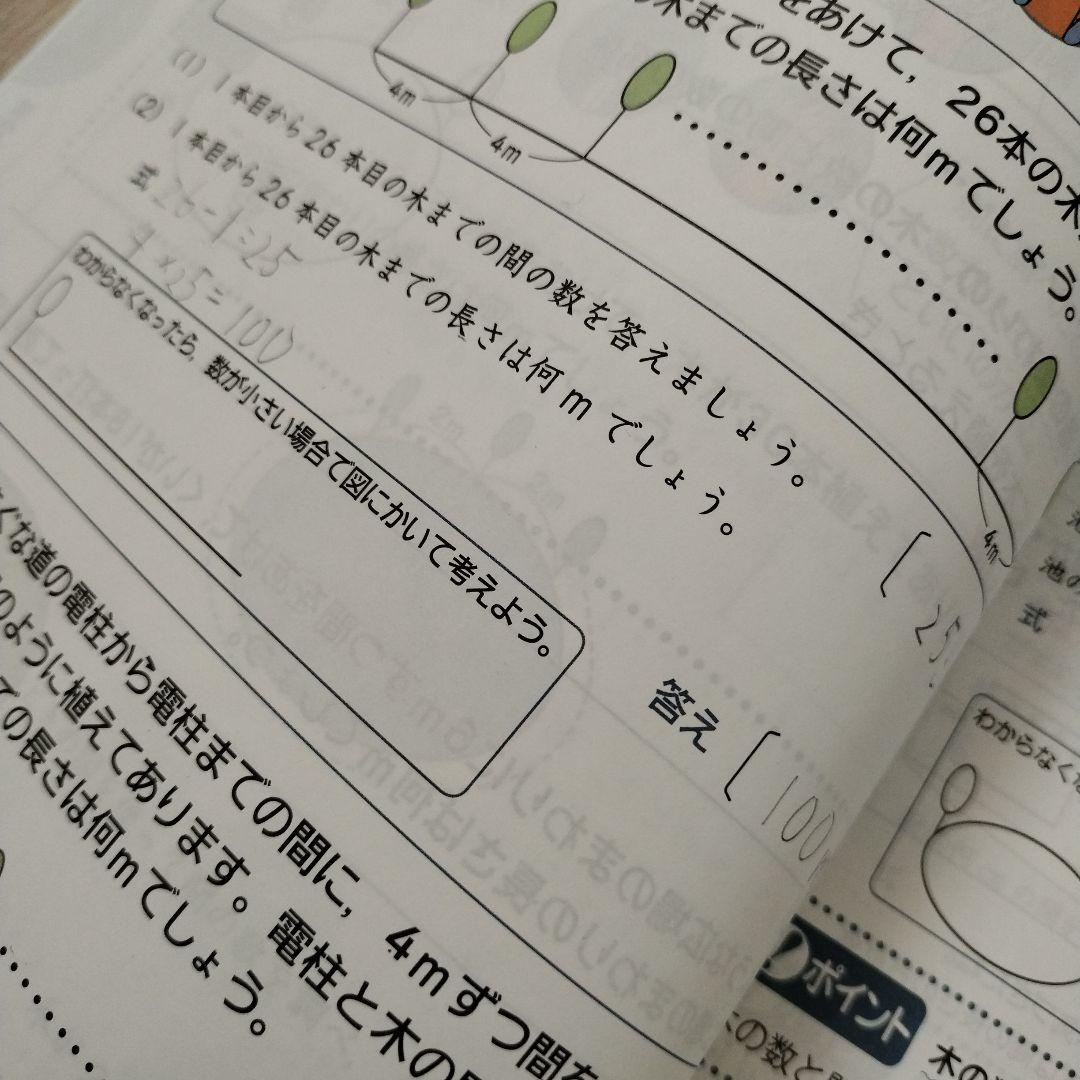 をあけて，26本の木
の木までの長さは何mでしょう。
4m
4m
4m
(1) 1本目から26本目の木までの間の数を答えましょう。
[ 25
(2) 1本目から26本目の木までの長さは何mでしょう。
式 26-1=25
4×25=100
答え [ 100
わからなくなったら，数が小さい場合で図にかいて考えよう。
ぐな道の電柱から電柱までの間に，4mずつ間を
のように植えてあります。電柱と木の
ての長さは何mでしょう。
池の
式
わからなくな
ポイント
木の数と
木の